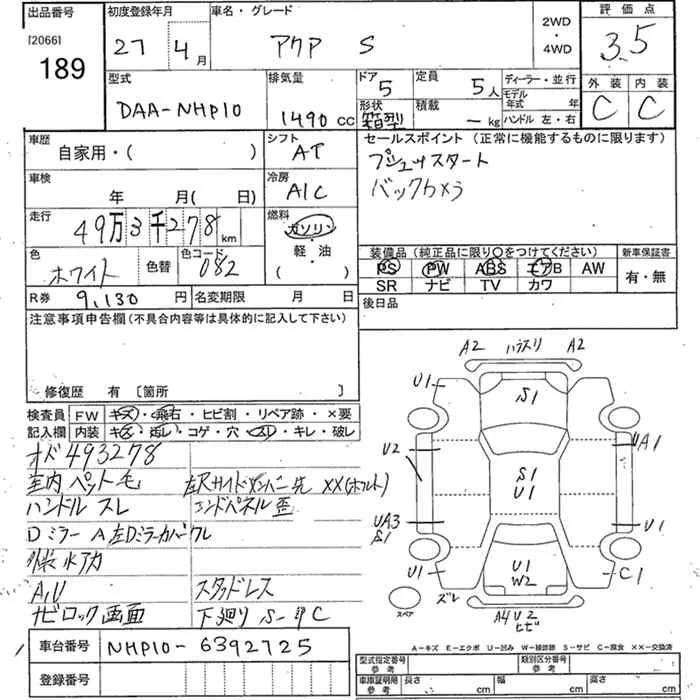 出品番号
[2066]
189
初度登録年月
27 4月
車名・グレード
アクア S
2WD
・
4WD
評価点
3.5
外装 内装
C C
型式
DAA-NHP10
排気量
1490cc
ドア
5
形状
箱型
定員
5人
積載
-kg
ディーラー・並行
モデル
年式 年
ハンドル 左・右
車歴
自家用・( )
シフト
AT
セールスポイント (正常に機能するものに限ります)
プシュスタート
バックカメラ
車検
年 月( 日)
冷房
A/C
走行
49万3千278km
燃料
ガソリン
・
軽・油
( )
色
ホワイト
色替
色コード
082
装備品(純正品に限り〇をつけてください)
PS PW ABS エアB AW
SR ナビ TV カワ
新車保証書
有・無
R券 9,130円
名変期限 月 日
後日品
注意事項申告欄(不具合内容等は具体的に記入して下さい)
修復歴 有 〔箇所 〕
検査員
記入欄
FW キズ・飛石・ヒビ割・リペア跡・×要
内装 キズ・汚レ・コゲ・穴・スレ・キレ・破レ
オド493278
室内ペット毛
左Rサイドメンバー先 XX(ボルト)
ハンドルスレ
エンドパネル歪
Dミラー A 左Dミラーカバーワレ
外装水アカ
A,U
スタッドレス
サビロック画面
下廻りS-中C
A2 ハウスリ A2
U1
S1
U2
UA1
S1
U1
UA3
S1
U1
U1
U1
W2
C1
ズレ
スペア
A4 U2
ヒビ
車台番号 NHP10-6392725
登録番号
A-キズ E-エクボ U-凹み W-補修跡 S-サビ C-腐食 XX-交換済
型式指定番号
参考
類別区分番号
参考
車庫証明用
参考
長さ cm
幅 cm
高さ cm